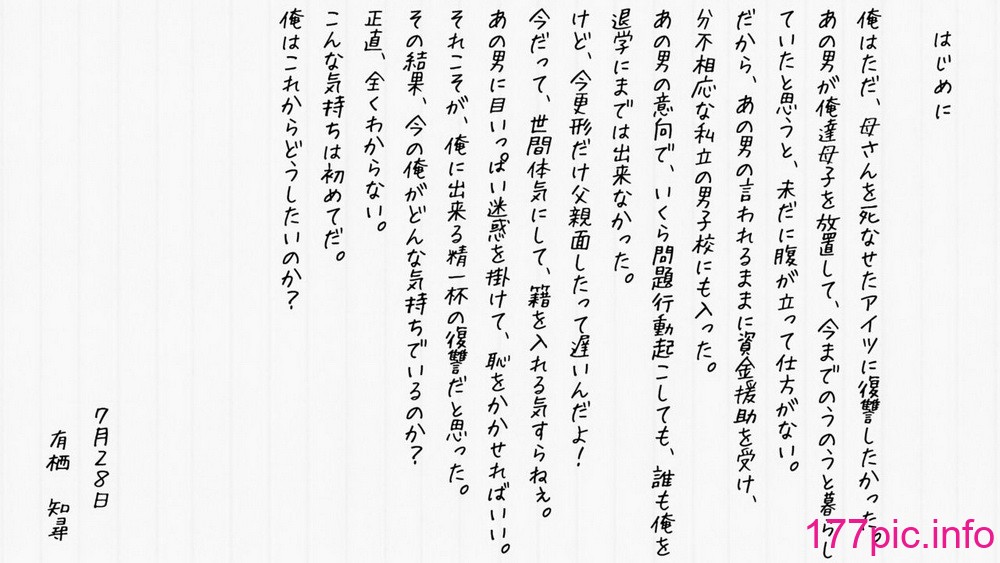 はじめに
俺はただ、母さんを死なせたアイツに復讐したかった。
あの男が俺達母子を放置して、今までのうのうと暮らし
ていたと思うと、未だに腹が立って仕方がない。
だから、あの男の言われるままに資金援助を受け、
分不相応な私立の男子校にも入った。
あの男の意向で、いくら問題行動起こしても、誰も俺を
退学にまでは出来なかった。
けど、今更形だけ父親面したって遅いんだよ！
今だって、世間体気にして、籍を入れる気すらねぇ。
あの男に目いっぱい迷惑を掛けて、恥をかかせればいい。
それこそが、俺に出来る精一杯の復讐だと思った。
その結果、今の俺がどんな気持ちでいるのか？
正直、全くわからない。
こんな気持ちは初めてだ。
俺はこれからどうしたいのか？
7月28日
有栖 知尋
177pic.info